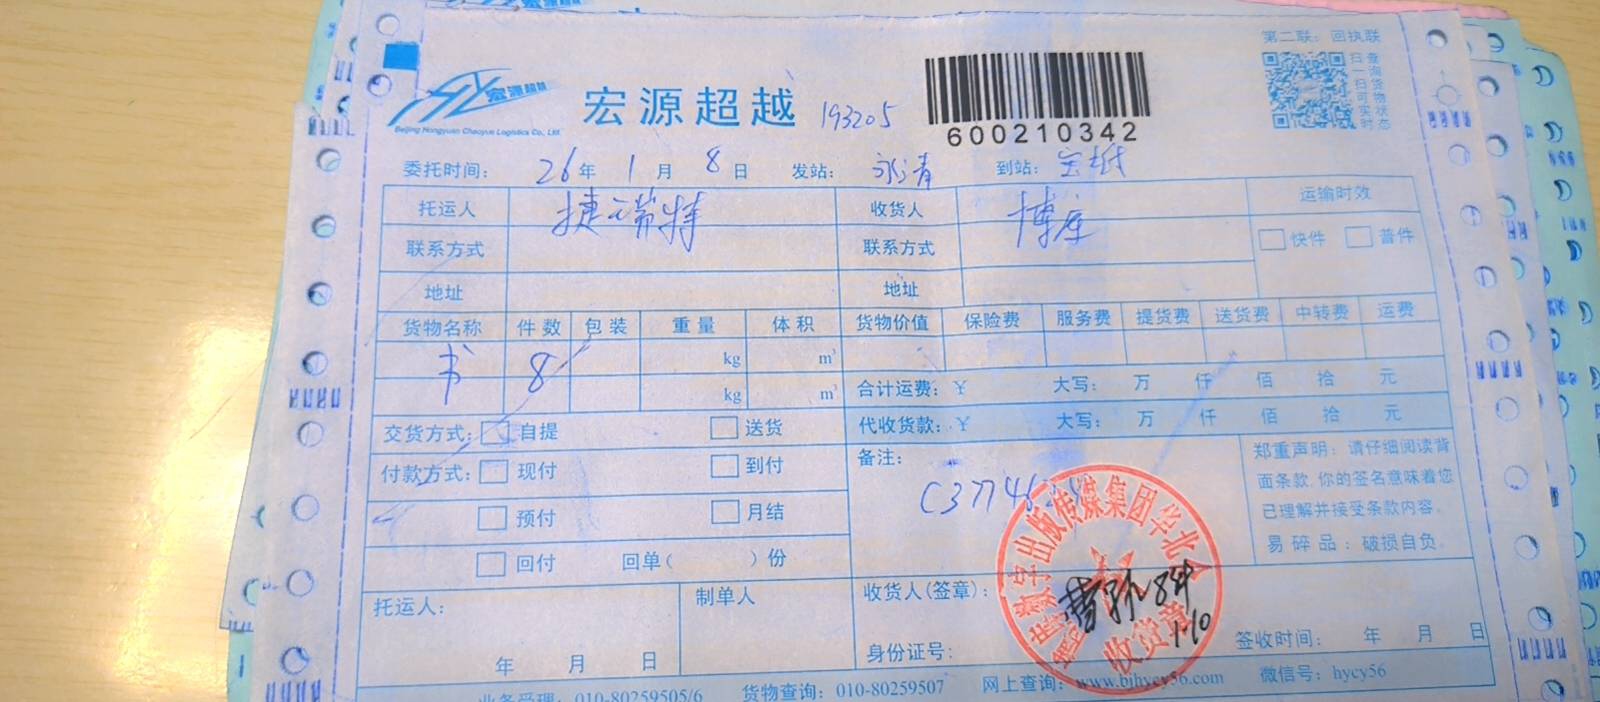 第二联：回执联
宏源超越
Beijing Hongyuan Chaoyue Logistics Co., Ltd.
宏源超越 193205
600210342
扫一扫可实时查询货物状态
委托时间： 26年 1月 8日 发站： 永清 到站：
托运人 捷瑞特 收货人 博库 运输时效
联系方式 联系方式 快件 普件
地址 地址
货物名称 件数 包装 重量 体积 货物价值 保险费 服务费 提货费 送货费 中转费 运费
书 8 kg m³
kg m³ 合计运费：¥ 大写： 万 仟 佰 拾 元
交货方式： 自提 送货 代收货款：¥ 大写： 万 仟 佰 拾 元
付款方式： 现付 到付 备注：
预付 月结 C37746
回付 回单（ ）份
郑重声明：请仔细阅读背
面条款,你的签名意味着您
已理解并接受条款内容。
易碎品：破损自负。
托运人： 制单人 收货人(签章)：
数字出版传媒集团华北
收货章
8件
1-10
年 月 日 身份证号： 签收时间： 年 月 日
业务受理：010-80259505/6 货物查询：010-80259507 网上查询：www.bjhycy56.com 微信号：hycy56